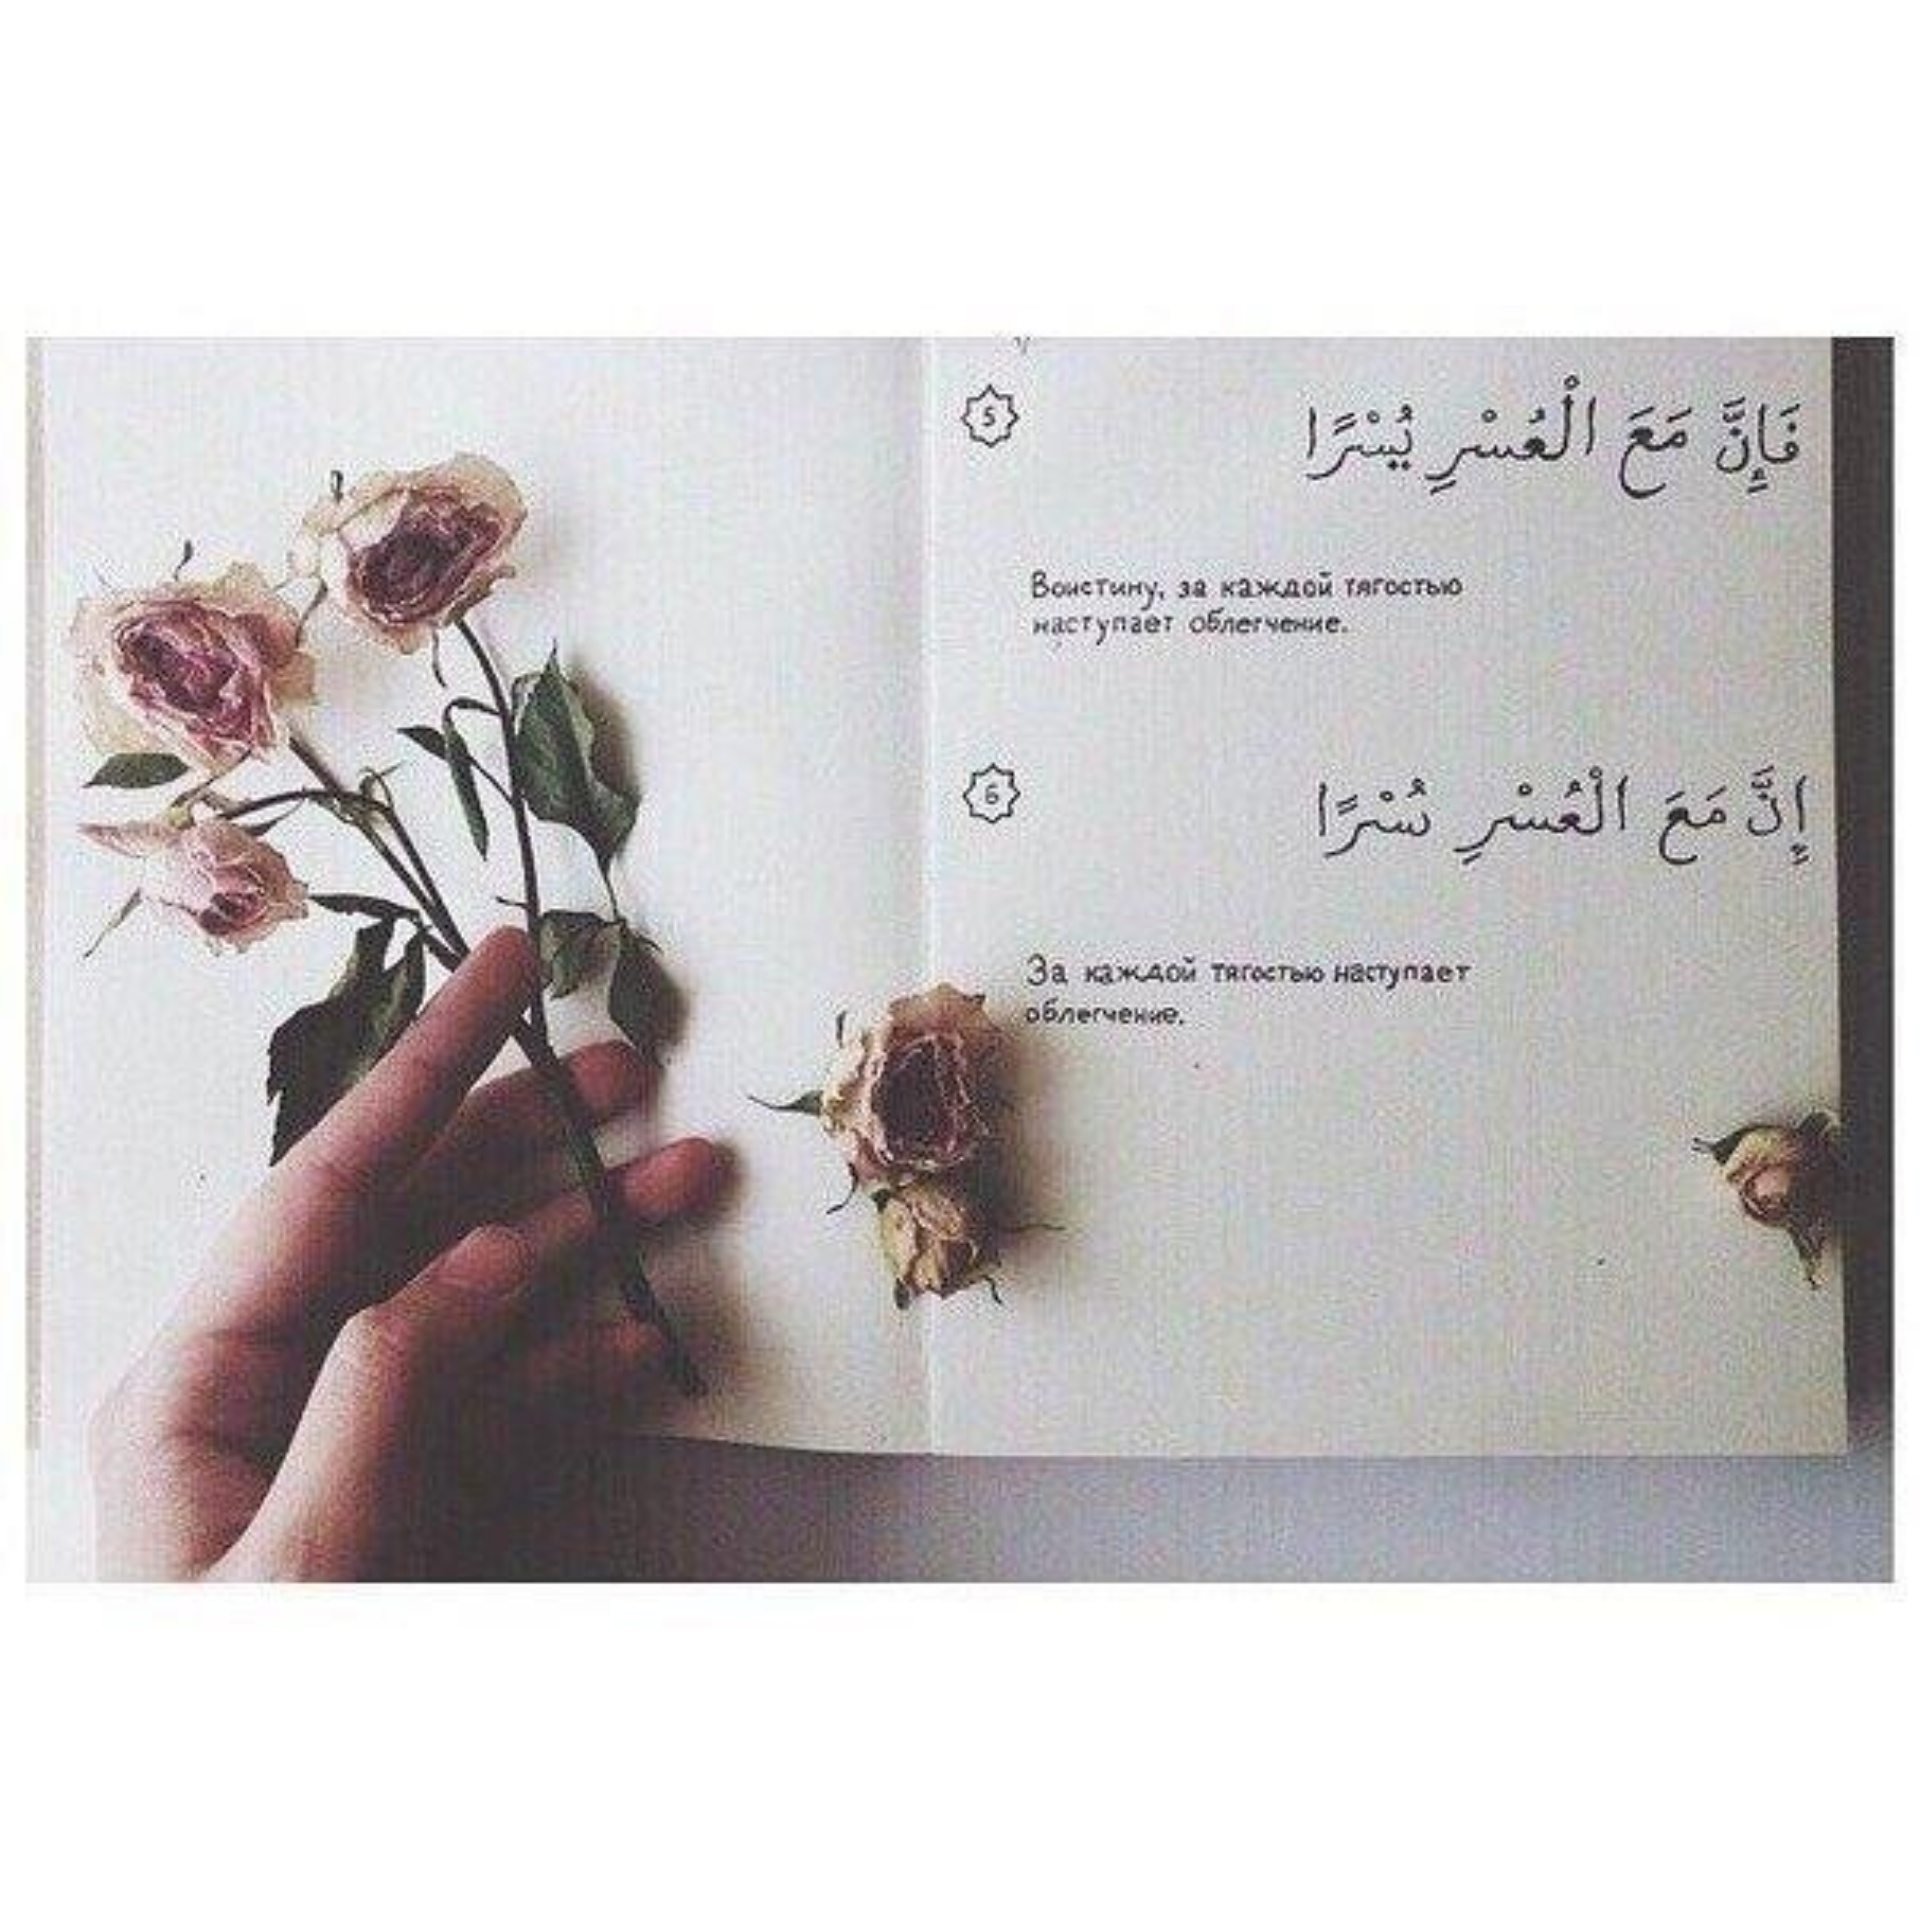 5
فَإِنَّ مَعَ الْعُسْرِ يُسْرًا
Воистину, за каждой тягостью
наступает облегчение.
6
إِنَّ مَعَ الْعُسْرِ يُسْرًا
За каждой тягостью наступает
облегчение.